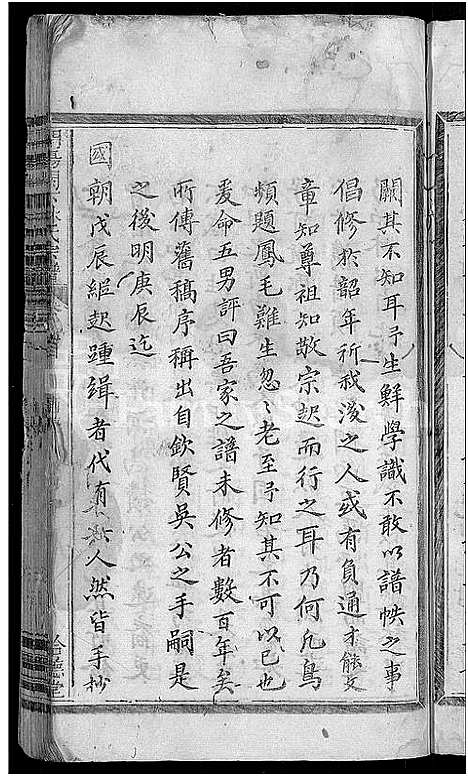 關其不知耳予生鮮學識不敢以譜帙之事
倡修於韶年祈我後之人或有負通才能文
章知尊祖知敬宗起而行之耳乃何凡鳥
頻題鳳毛難生忽〻老至予知其不可以已也
爰命五男評曰吾家之譜未修者數百年矣
所傳舊稿序稱出自欽賢吳公之手嗣是
之後明庚辰迄
國
朝戊辰經起踵緝者代有其人然皆手抄